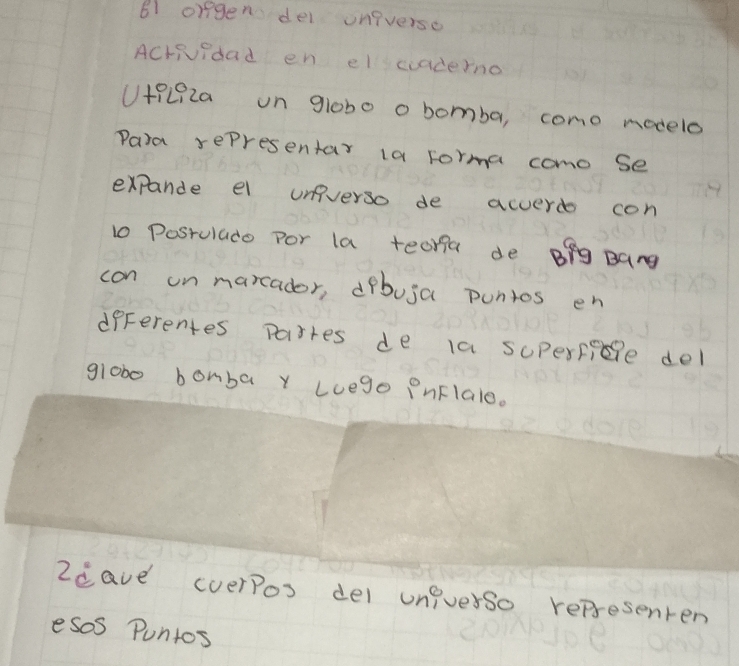 El origen del universo
Actividad en el cuaderno
Utiliza un globo o bomba, como modelo
Para representar la forma como se
expande el universo de acuerdo con
lo Postulado Por la teoria de Big Bang
con un marcador, dibuja puntos en
diferentes Partes de la superficie del
globo bomba y Luego inflalo.
2¿Qué cuerpos del universo representen
esos Puntos